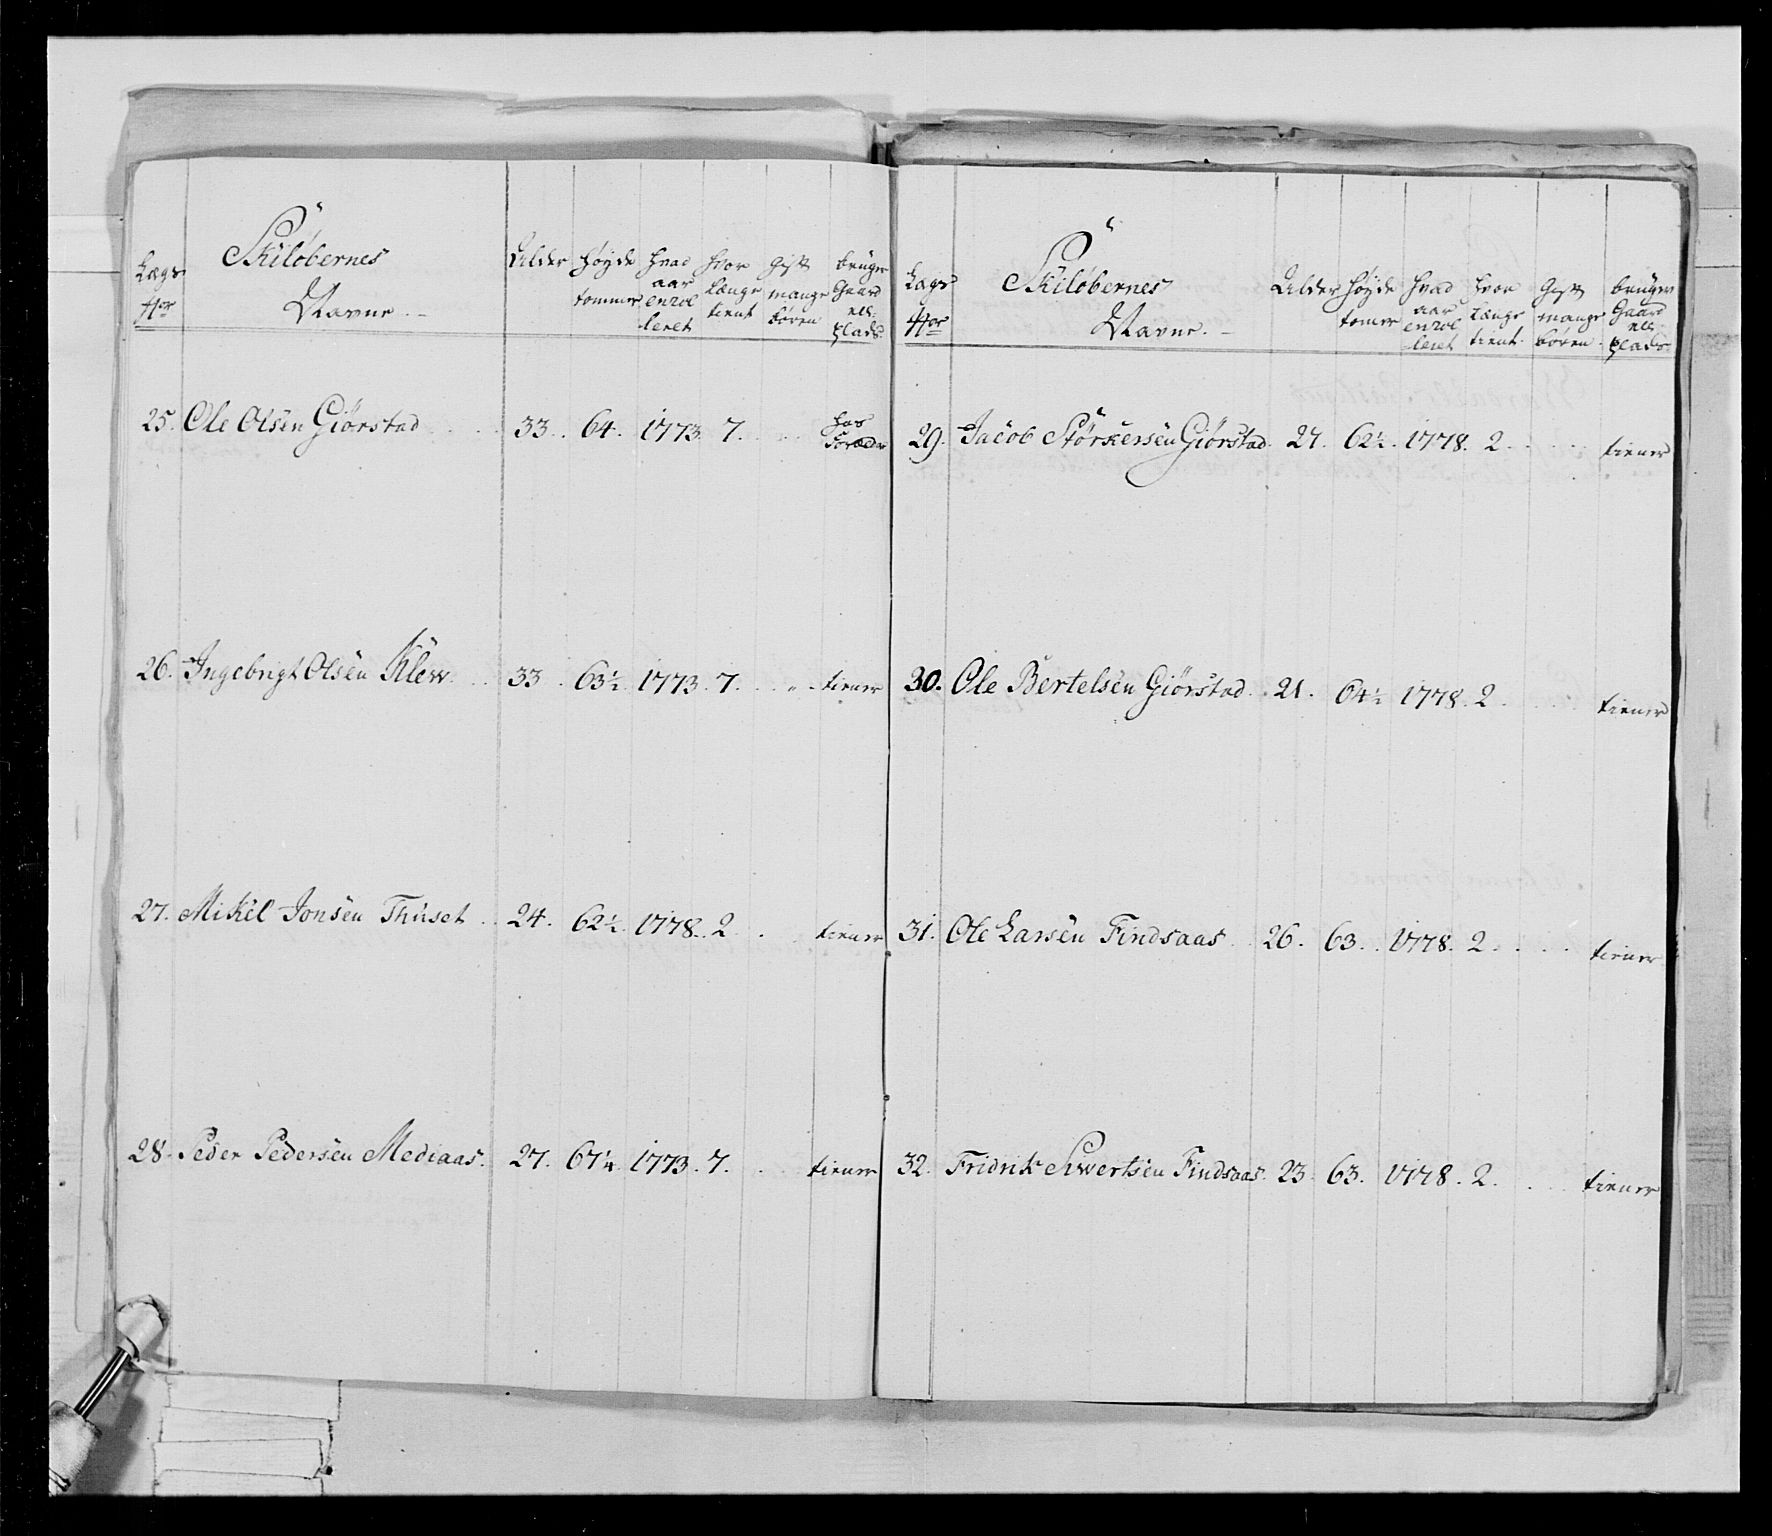 Lægs No
Skilöbernes Navne.
Alder
höyde tommer
hvad aar enrolleret
hvor længe tient
Gift mange börn
bruger Gaard ell: plads.
25. Ole Olsen Giörstad 33. 64. 1773. 7. hos Foræder
26. Ingebrigt Olsen Klew. 33. 63½. 1773. 7. tiener
27. Mikel Jonsen Thuset 24. 62½. 1778. 2. tiener
28. Peder Pedersen Mediaas. 27. 67¼. 1773. 7. tiener
Lægs No
Skilöbernes Navne.
Alder
höyde tomer
hvad aar enrolleret
hvor længe tient.
Gift mange börn.
bruger Gaard ell: plads.
29. Jacob Störkersen Giörstad. 27. 62½. 1778. 2. tiener
30. Ole Bertelsen Giörstad. 21. 64½. 1778. 2. tiener
31. Ole Larsen Findsaas 26. 63. 1778. 2. tiener
32. Fridrik Siwertsen Findsaas. 23. 63. 1778. 2. tiener